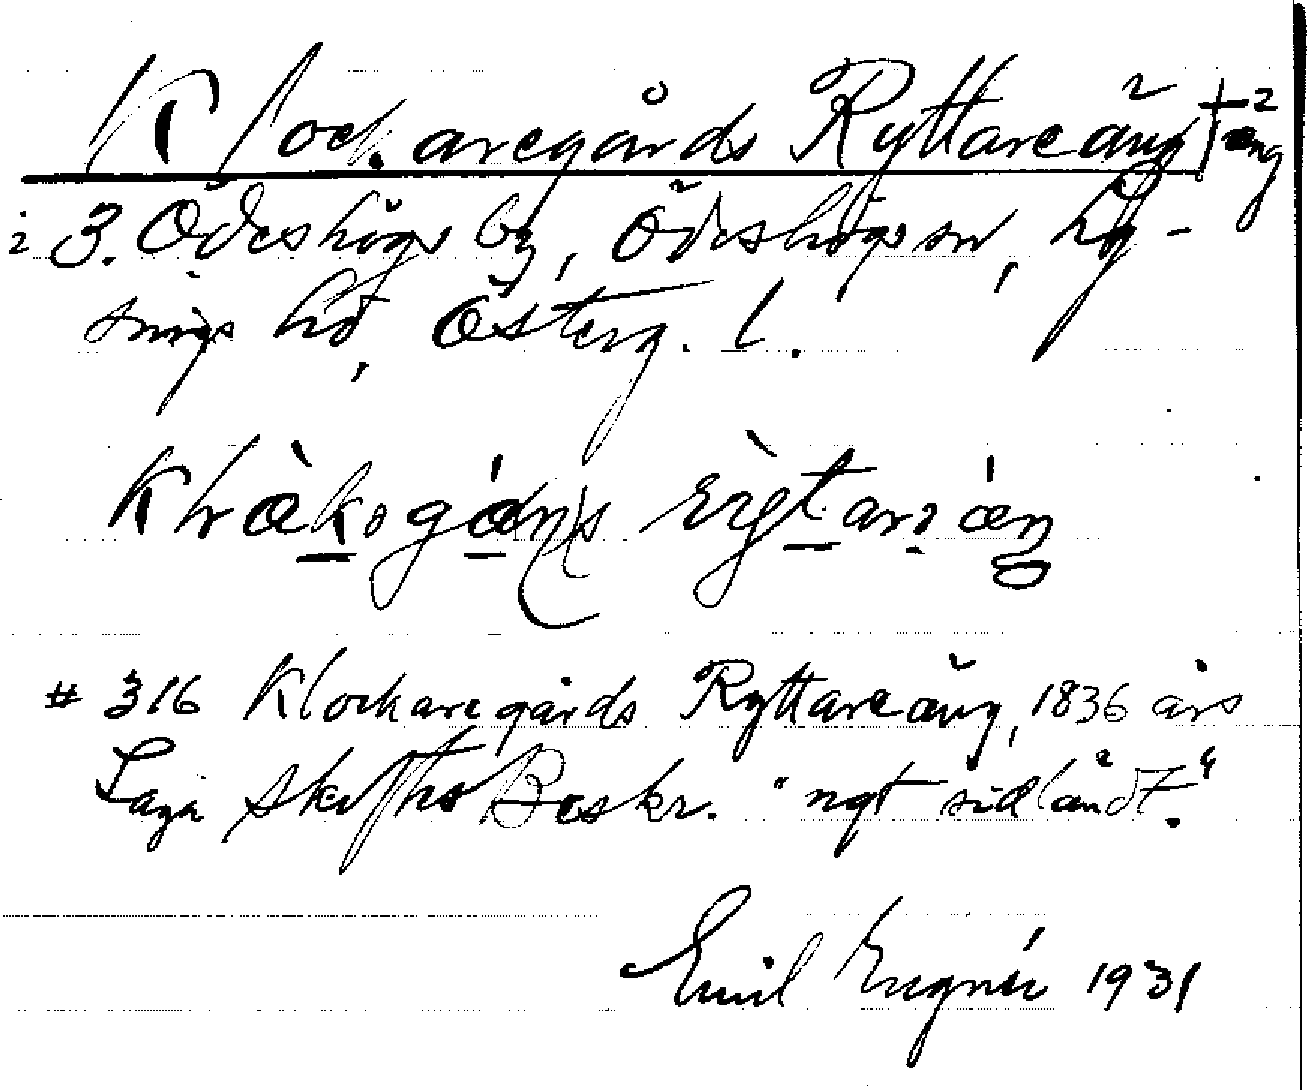 Klockaregårds Ryttareäng † äng
i 3. Ödeshögs by, Ödeshögs sn, Ly-
sings hd, Österg. l.
# 316 Klockaregårds Ryttareäng, 1836 års
Laga Skifts Beskr. "ngt sidländt."
Emil Engnér 1931